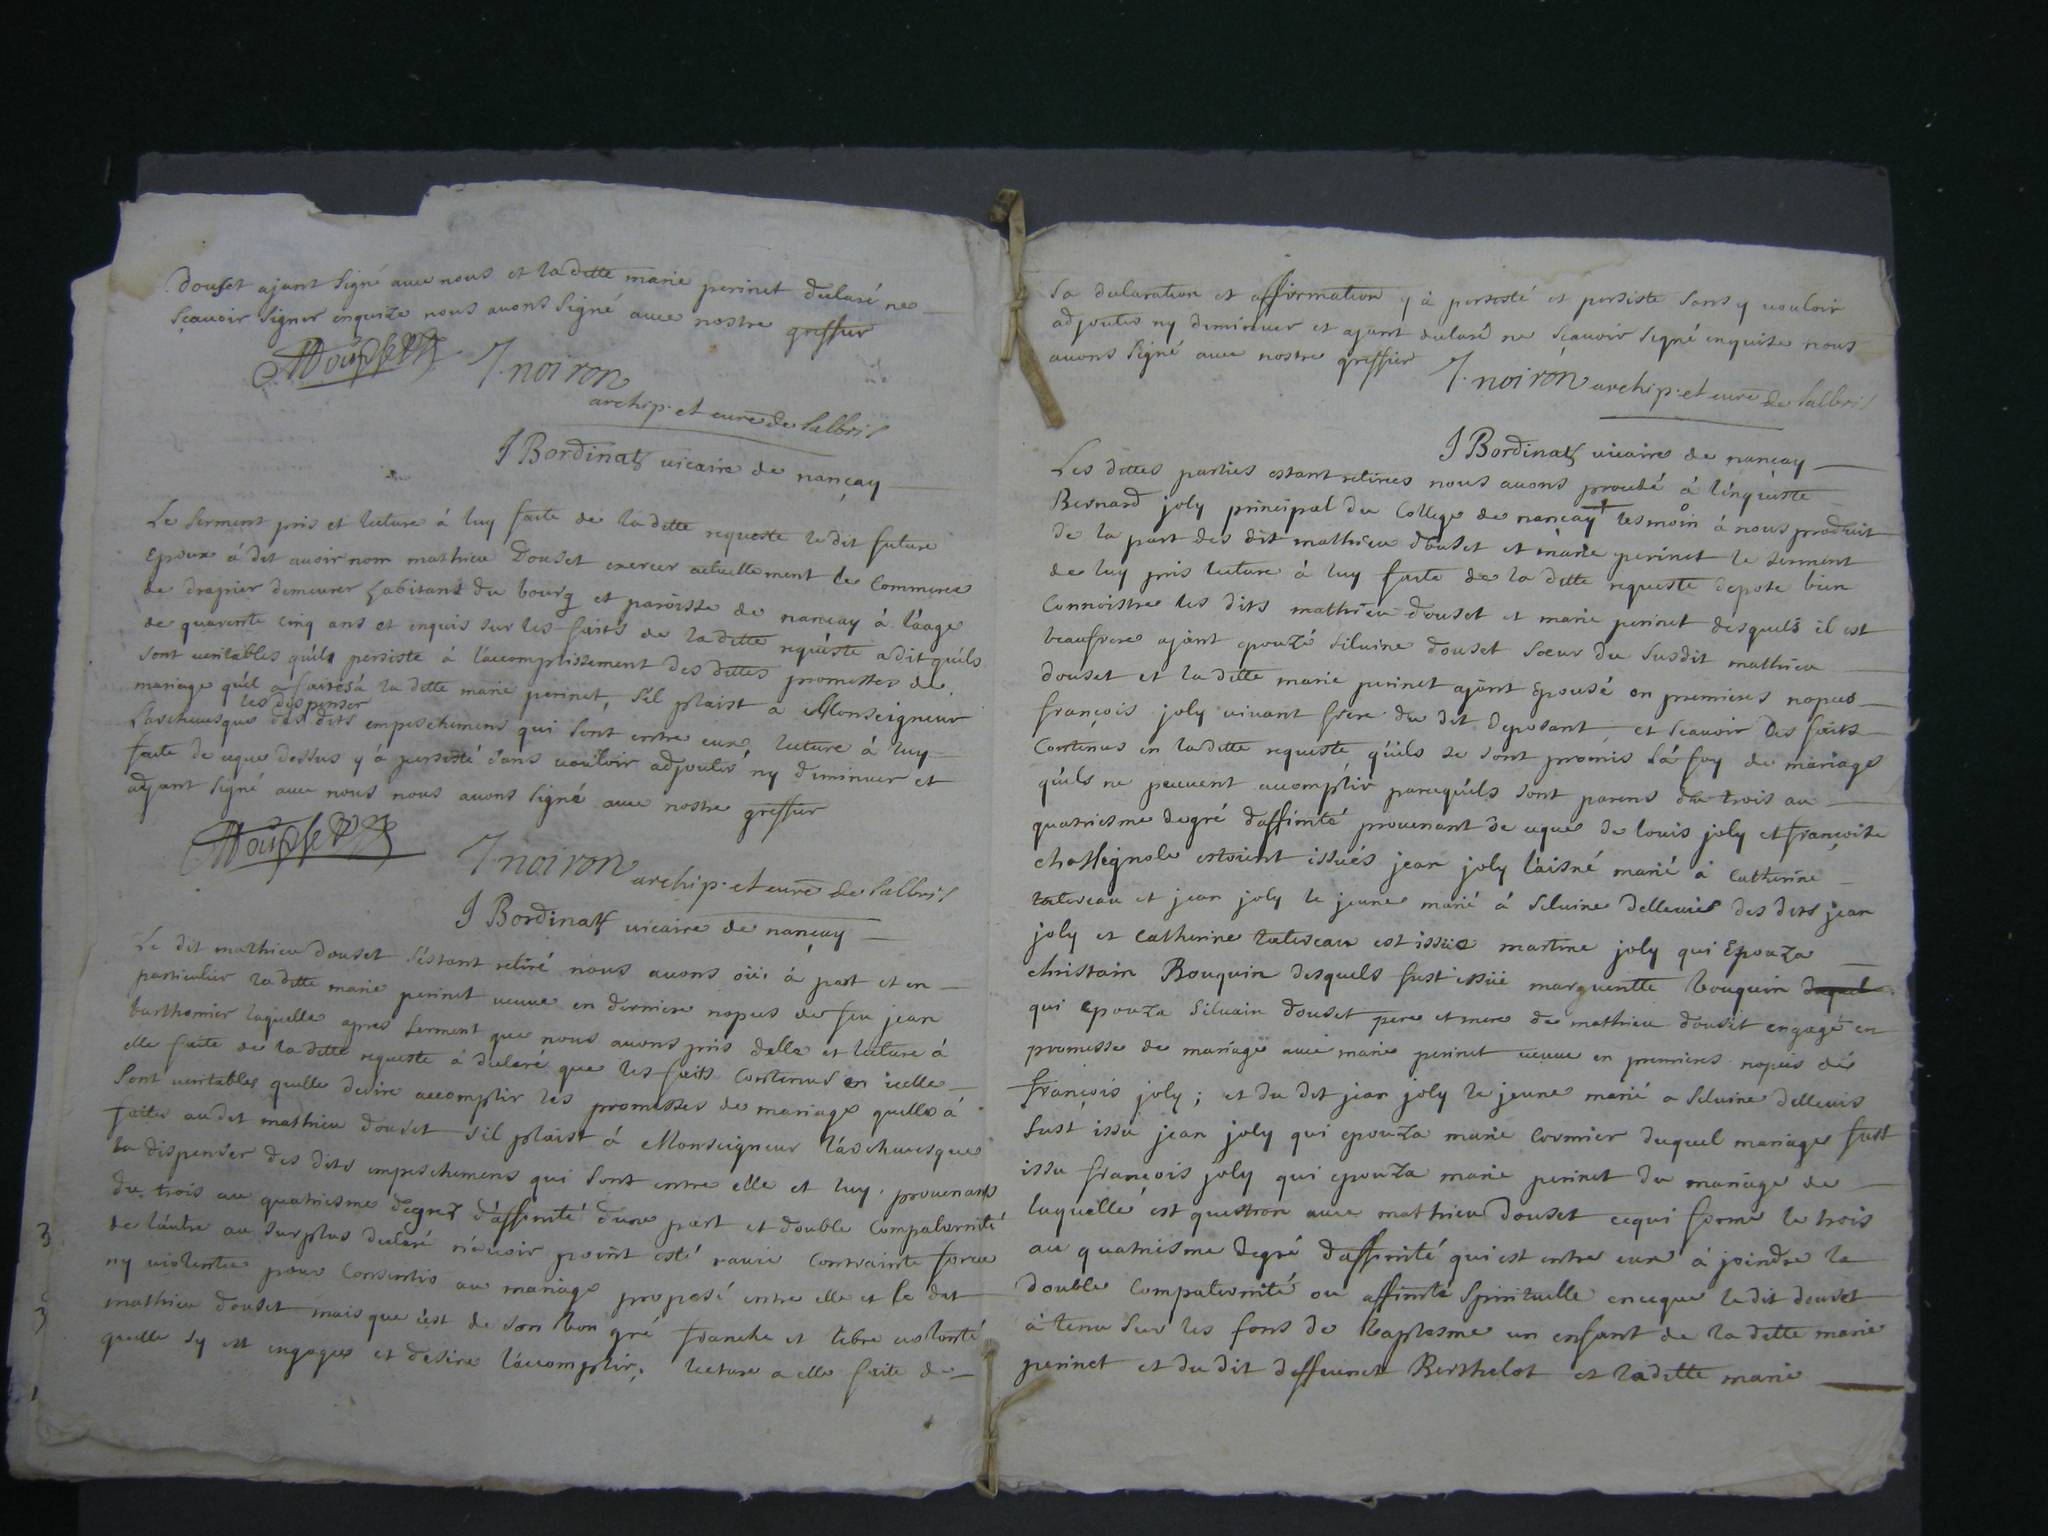 Douset ajant signé avec nous et la ditte marie perinet declaré ne
sçavoir signer enquize nous avons signé avec nostre greffier
MDouset
J. noiron
archip. et curé de Salbris
J Bordinat vicaire de nançay
Le serment pris et lecture à luy faite de la ditte requeste le dit future
Epoux à dit avoir nom mathieu Douset exercer actuellement le Commerce
de drapier demeurer habitant du bourg et paroisse de nançay à l'âage
de quarente cinq ans et enquis sur les faits de la ditte requéste a dit qu'ils
sont veritables qu'ils persiste à l'accomplissement des dittes promesses de
mariage qu'il a faittes à la ditte marie perinet, s'il plaist a Monseigneur
les dispenser
L'archevesque des dits empeschemens qui sont entre eux, lecture à luy
faite de ceque dessus y à persisté sans vouloir adjouter ny diminuer et
ajant signé avec nous nous avons signé avec nostre greffier
MDouset
J. noiron archip. et curé de Salbris
J Bordinat vicaire de nançay
Le dit mathieu douset s'éstant retiré nous avons oüi à part et en
particulier la ditte marie perinet veuve en derniere nopces de feu jean
barthomier laquelle apres serment que nous avons pris d'elle et lecture à
elle faite de la ditte requeste à declaré que les faits Contenus en icelle
sont veritables quelle desire accomplir les promesses de mariage quelle à
faites au dit mathieu douset s'il plaist à Monseigneur l'archevesque
la dispenser des dits empeschemens qui sont entre elle et luy provenants
du trois au quatriesme degrez d'affinité d'une part et double Compaternité
de l'autre au surplus declaré n'avoir point esté ravie Contrainte forcée
ny violentée pour Consentir au mariage proposé entre elle et le dit
mathieu douset mais que c'est de son bon gré franche et libre volonté
quelle sy est engagée et desire l'accomplir, lecture a elle faite de
sa declaration et affirmation y à persisté et persiste sans y vouloir
adjouter ny diminuer et ajant declaré ne sçavoir signé enquise nous
avons signé avec nostre greffier
J. noiron archip. et curé de Salbris
J Bordinat vicaire de nançay
Les dittes parties estant retirées nous avons procedé à l'enqueste
Bernard joly principal du College de nançay tesmoin à nous produit
de la part des dit mathieu douset et marie perinet le serment
de luy pris lecture à luy faite de la ditte requeste depose bien
Connoistre les dits mathieu douset et marie perinet desquels il est
beaufrere ajant epouzé silvine douset soeur du susdit mathieu
douset et la ditte marie perinet ajant Epousé en premieres nopces
françois joly vivant frere du dit deposant et scavoir Les faits
Contenus en la ditte requeste qu'ils se sont promis la foy de mariage
qu'ils ne peuvent accomplir parcequ'ils sont parens du trois au
quatriesme degré d'affinité provenant de ceque de louis joly et françoise
chassignole estoient issués jean joly l'aisné marié à Catherine
et jean joly le jeune marié à silvine dellevis des dits jean
joly et Catherine est issüe martine joly qui Epouza
christain Bouquin desquels fust issüe margueritte bouquin
qui epouza silvain douset pere et mere de mathieu douset engagé en
promesse de mariage avec marie perinet veuve en premieres nopces de
françois joly; et du dit jean joly le jeune marié a silvine dellevis
fust issu jean joly qui epouza marie Cormier duquel mariage fust
issu françois joly qui epouza marie perinet du mariage de
laquelle est question avec mathieu douset cequi forme le trois
au quatriesme degré d'affinité qui est entre eux à joindre la
double Compaternité ou affinité spirituelle enceque le dit douset
à tenu sur les fons de baptesme un enfant de la ditte marie
perinet et du dit deffunct Berthelot et la ditte marie